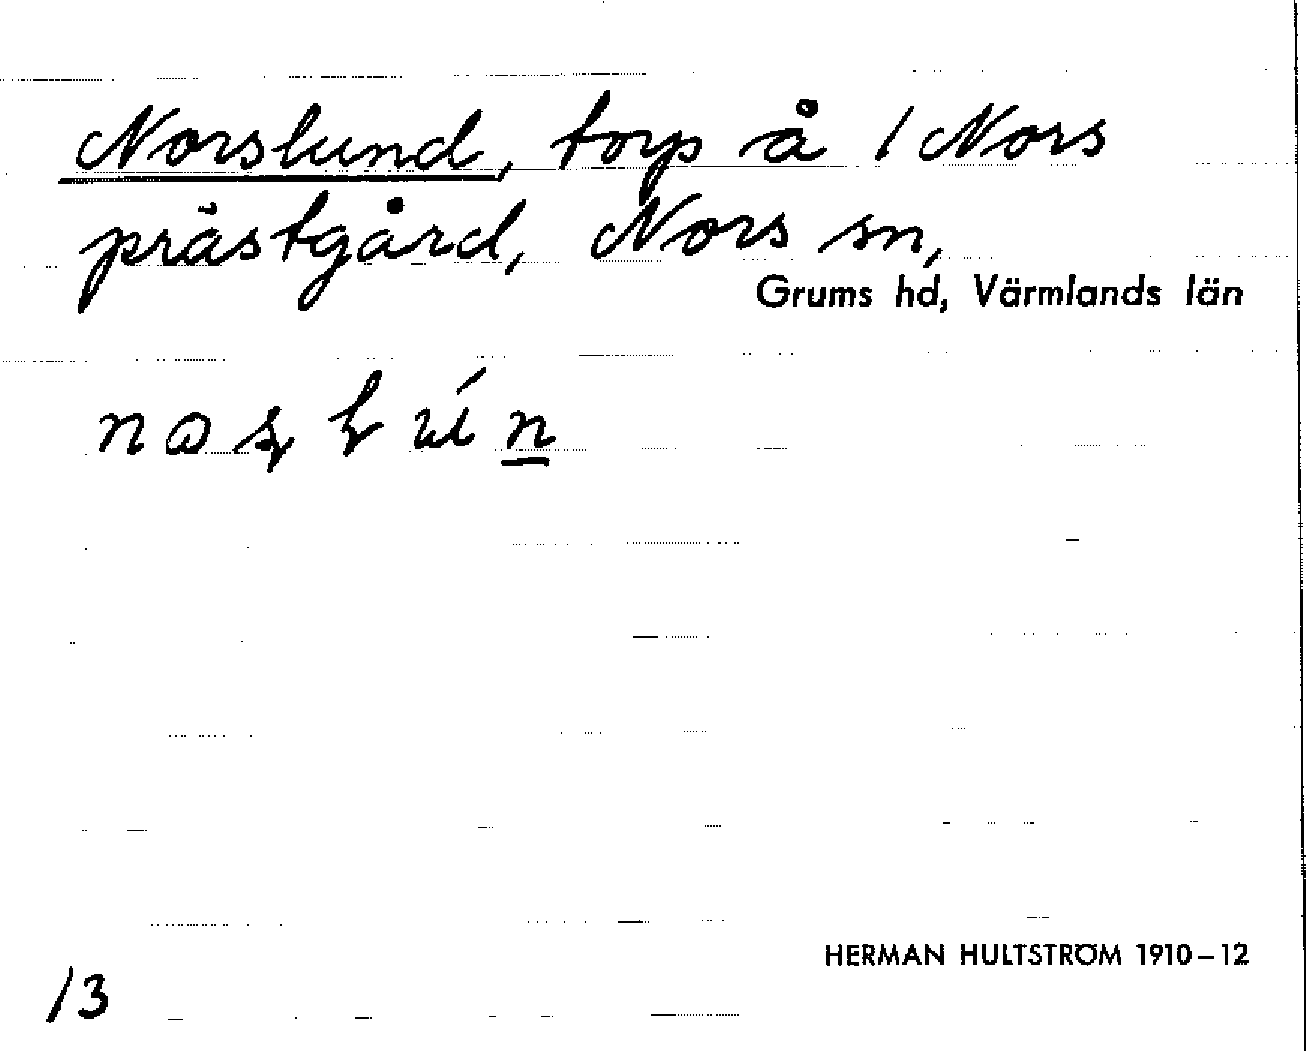 Norslund, torp å 1 Nors
prästgård, Nors sn,
Grums hd, Värmlands län
HERMAN HULTSTRÖM 1910–12
13